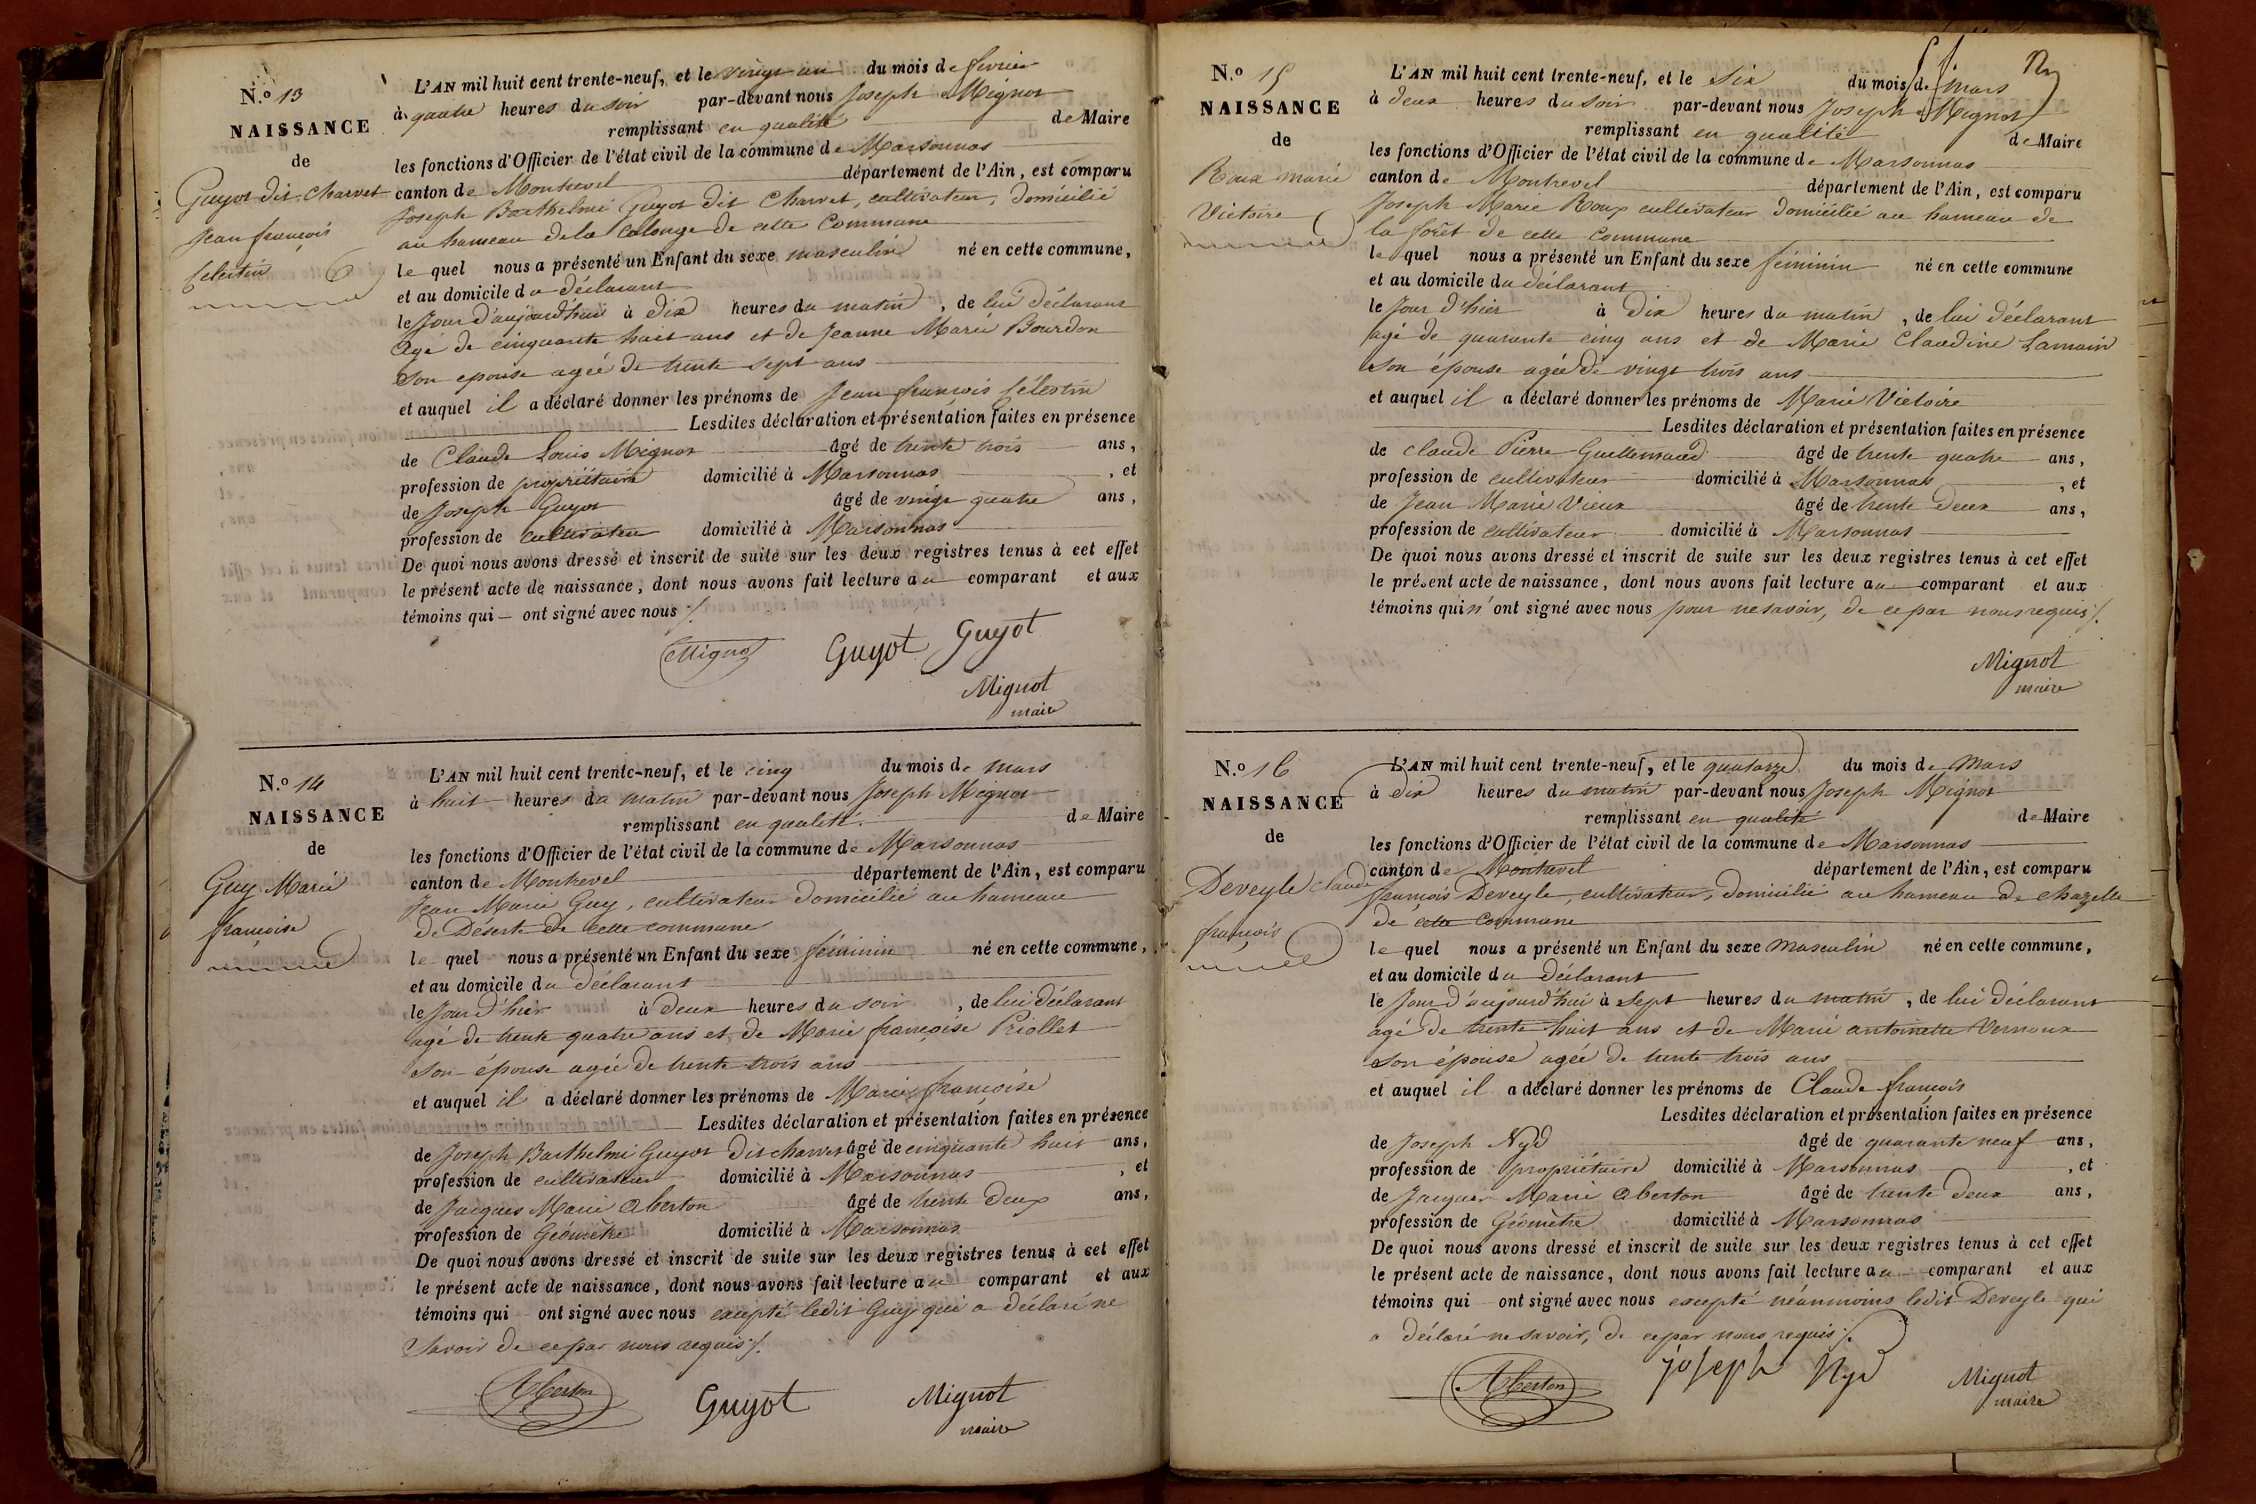 N.º 13
NAISSANCE
de
Guyot dit Charvet
Jean françois
Celestin
L'AN mil huit cent trente-neuf, et le vingt un du mois de fevrier
à quatre heures du soir par-devant nous Joseph Mignot
remplissant en qualité de Maire
les fonctions d'Officier de l'état civil de la commune de Marsonnas
canton de Montrevel département de l'Ain, est comparu
Joseph Barthelmi Guyot dit Charvet, cultivateur, domicilié
au hameau de la Calonge de cette Commune
le quel nous a présenté un Enfant du sexe masculin né en cette commune,
et au domicile du déclarant
le Jour d'aujourd'hui à dix heures du matin, de lui déclarant
agé de cinquante huit ans et de Jeanne Marie Bourdon
son epouse agée de trente sept ans
et auquel il a déclaré donner les prénoms de Jean françois Célestin
Lesdites déclaration et présentation faites en présence
de Claude Louis Mignot âgé de trente trois ans,
profession de propriétaire domicilié à Marsonnas, et
de Joseph Guyot âgé de vingt quatre ans,
profession de cultivateur domicilié à Marsonnas
De quoi nous avons dressé et inscrit de suite sur les deux registres tenus à cet effet
le présent acte de naissance, dont nous avons fait lecture au comparant et aux
témoins qui — ont signé avec nous /.
Mignot Guyot Guyot
Mignot
maire
N.º 14
NAISSANCE
de
Guy Marie
françoise
L'AN mil huit cent trente-neuf, et le cinq du mois de mars
à huit heures du matin par-devant nous Joseph Mignot
remplissant en qualité de Maire
les fonctions d'Officier de l'état civil de la commune de Marsonnas
canton de Montrevel département de l'Ain, est comparu
Jean Marie Guy, cultivateur domicilié au hameau
de Déserte de cette commune
le quel nous a présenté un Enfant du sexe féminin né en cette commune,
et au domicile du déclarant
le Jour d'hier à deux heures du soir, de lui déclarant
agé de trente quatre ans et de Marie françoise Priollet
son épouse agée de trente trois ans
et auquel il a déclaré donner les prénoms de Marie françoise
Lesdites déclaration et présentation faites en présence
de Joseph Barthelmi Guyot dit charvet âgé de cinquante huit ans,
profession de cultivateur domicilié à Marsonnas, et
de Jacques Marie Oberton âgé de trente deux ans,
profession de Géomètre domicilié à Marsonnas
De quoi nous avons dressé et inscrit de suite sur les deux registres tenus à cet effet
le présent acte de naissance, dont nous avons fait lecture au comparant et aux
témoins qui ont signé avec nous excepté ledit Guy qui a déclaré ne
savoir de ce par nous requis /.
Oberton Guyot Mignot
maire
N.º 15
NAISSANCE
de
Roux marie
Victoire
L'AN mil huit cent trente-neuf, et le six du mois de mars
à deux heures du soir par-devant nous Joseph Mignot
remplissant en qualité de Maire
les fonctions d'Officier de l'état civil de la commune de Marsonnas
canton de Montrevel département de l'Ain, est comparu
Joseph Marie Roux cultivateur domicilié au hameau de
la forêt de cette commune
le quel nous a présenté un Enfant du sexe féminin né en cette commune
et au domicile du déclarant
le Jour d'hier à dix heures du matin, de lui déclarant
agé de quarante cinq ans et de Marie Claudine Lamain
son épouse agée de vingt trois ans
et auquel il a déclaré donner les prénoms de Marie Victoire
Lesdites déclaration et présentation faites en présence
de Claude Pierre Guillemaud âgé de trente quatre ans,
profession de cultivateur domicilié à Marsonnas, et
de Jean Marie Vieux âgé de trente deux ans,
profession de cultivateur domicilié à Marsonnas
De quoi nous avons dressé et inscrit de suite sur les deux registres tenus à cet effet
le présent acte de naissance, dont nous avons fait lecture au comparant et aux
témoins qui n'ont signé avec nous pour ne savoir, de ce par nous requis /.
Mignot
maire
N.º 16
NAISSANCE
de
Deveyle Claude
françois
L'AN mil huit cent trente-neuf, et le quatorze du mois de Mars
à dix heures du matin par-devant nous Joseph Mignot
remplissant en qualité de Maire
les fonctions d'Officier de l'état civil de la commune de Marsonnas
canton de Montrevel département de l'Ain, est comparu
françois Deveyle, cultivateur, domicilié au hameau de chazelle
de cette commune
le quel nous a présenté un Enfant du sexe masculin né en cette commune,
et au domicile du déclarant
le Jour d'aujourd'hui à sept heures du matin, de lui déclarant
agé de trente huit ans et de Marie antoinette Vernoux
son épouse agée de trente trois ans
et auquel il a déclaré donner les prénoms de Claude françois
Lesdites déclaration et présentation faites en présence
de Joseph Nyd âgé de quarante neuf ans,
profession de propriétaire domicilié à Marsonnas, et
de Jacques Marie Oberton âgé de trente deux ans,
profession de Géomètre domicilié à Marsonnas
De quoi nous avons dressé et inscrit de suite sur les deux registres tenus à cet effet
le présent acte de naissance, dont nous avons fait lecture au comparant et aux
témoins qui ont signé avec nous excepté néanmoins ledit Deveyle qui
a déclaré ne savoir, de ce par nous requis /.
Oberton joseph Nyd Mignot
maire